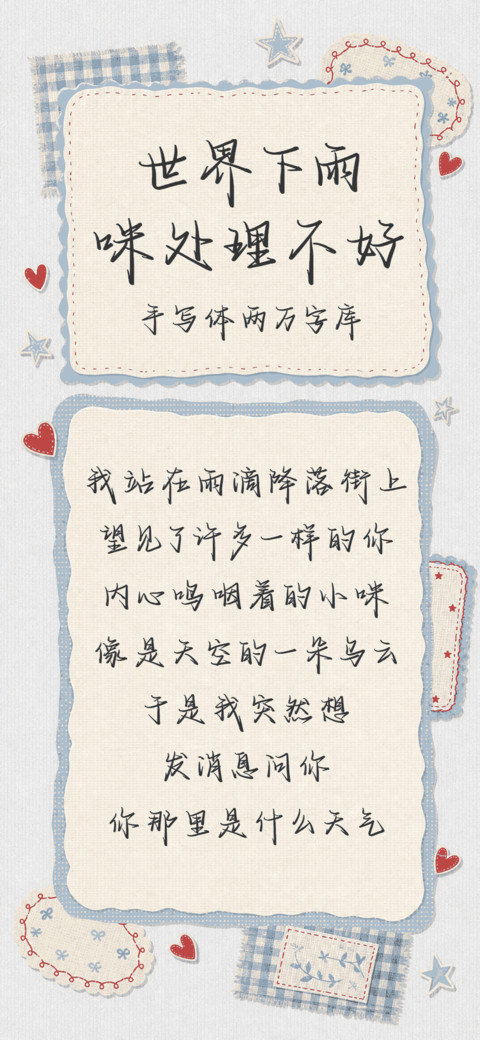 世界下雨
咪处理不好
手写体两万字库
我站在雨滴降落街上
望见了许多一样的你
内心呜咽着的小咪
像是天空的一朵乌云
于是我突然想
发消息问你
你那里是什么天气